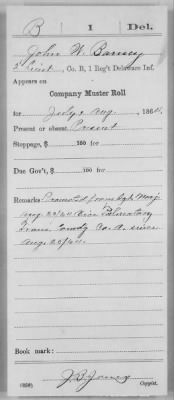 B 1 Del.
John W. Barney
2 Lieut, Co. B, 1 Reg't Delaware Inf.
Appears on
Company Muster Roll
for July & Aug, 1864.
Present or absent Present
Stoppage, $ 100 for
Due Gov't, $ 100 for
Remarks Promoted from Sgt Maj
Aug 23/64 vice
Comdg Co. A. since
Aug 25/64.
Book mark:
(358) J B Jones Copyist.